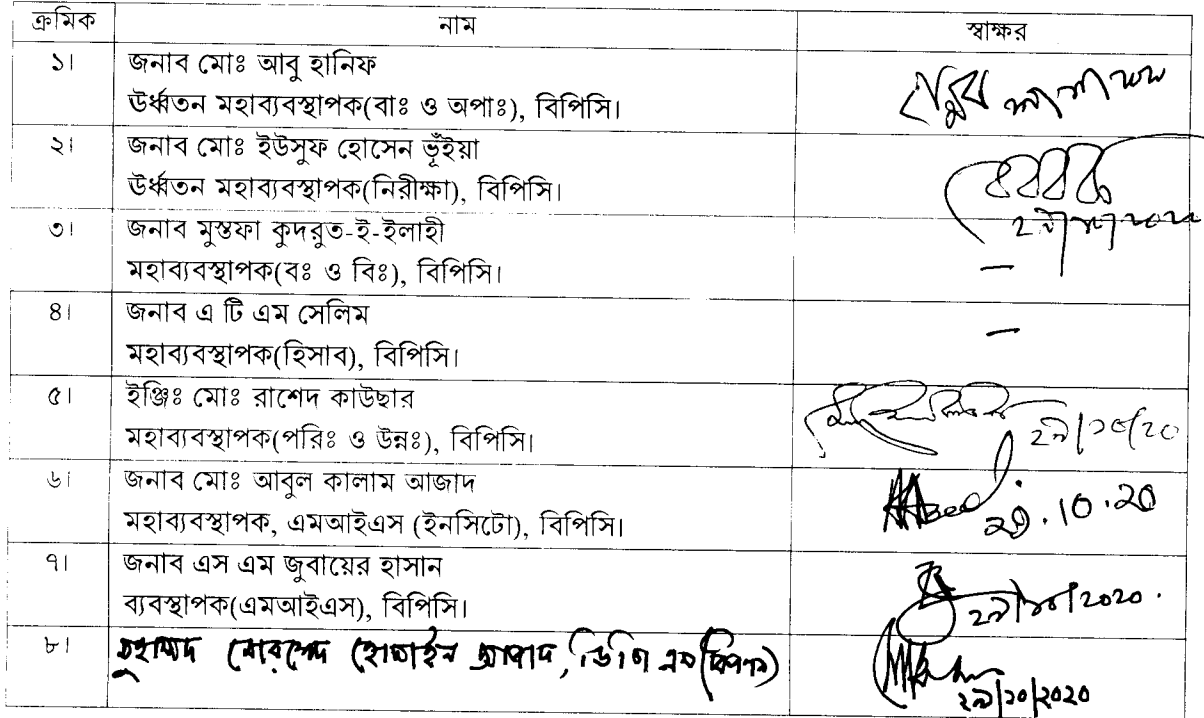 ক্রমিক নাম স্বাক্ষর
১। জনাব মোঃ আবু হানিফ
ঊর্ধ্বতন মহাব্যবস্থাপক(বাঃ ও অপাঃ), বিপিসি।
২। জনাব মোঃ ইউসুফ হোসেন ভূঁইয়া
ঊর্ধ্বতন মহাব্যবস্থাপক(নিরীক্ষা), বিপিসি।
৩। জনাব মুস্তফা কুদরুত-ই-ইলাহী
মহাব্যবস্থাপক(বঃ ও বিঃ), বিপিসি। —
৪। জনাব এ টি এম সেলিম
মহাব্যবস্থাপক(হিসাব), বিপিসি। —
৫। ইঞ্জিঃ মোঃ রাশেদ কাউছার
মহাব্যবস্থাপক(পরিঃ ও উন্নঃ), বিপিসি। ২৯/১০/২০
৬। জনাব মোঃ আবুল কালাম আজাদ
মহাব্যবস্থাপক, এমআইএস (ইনসিটো), বিপিসি। 29.10.20
৭। জনাব এস এম জুবায়ের হাসান
ব্যবস্থাপক(এমআইএস), বিপিসি। ২৯/১০/2020.
৮। মোরশেদ হোসাইন আজাদ, ডিজিএম (বিপণন)
২৯/১০/2020